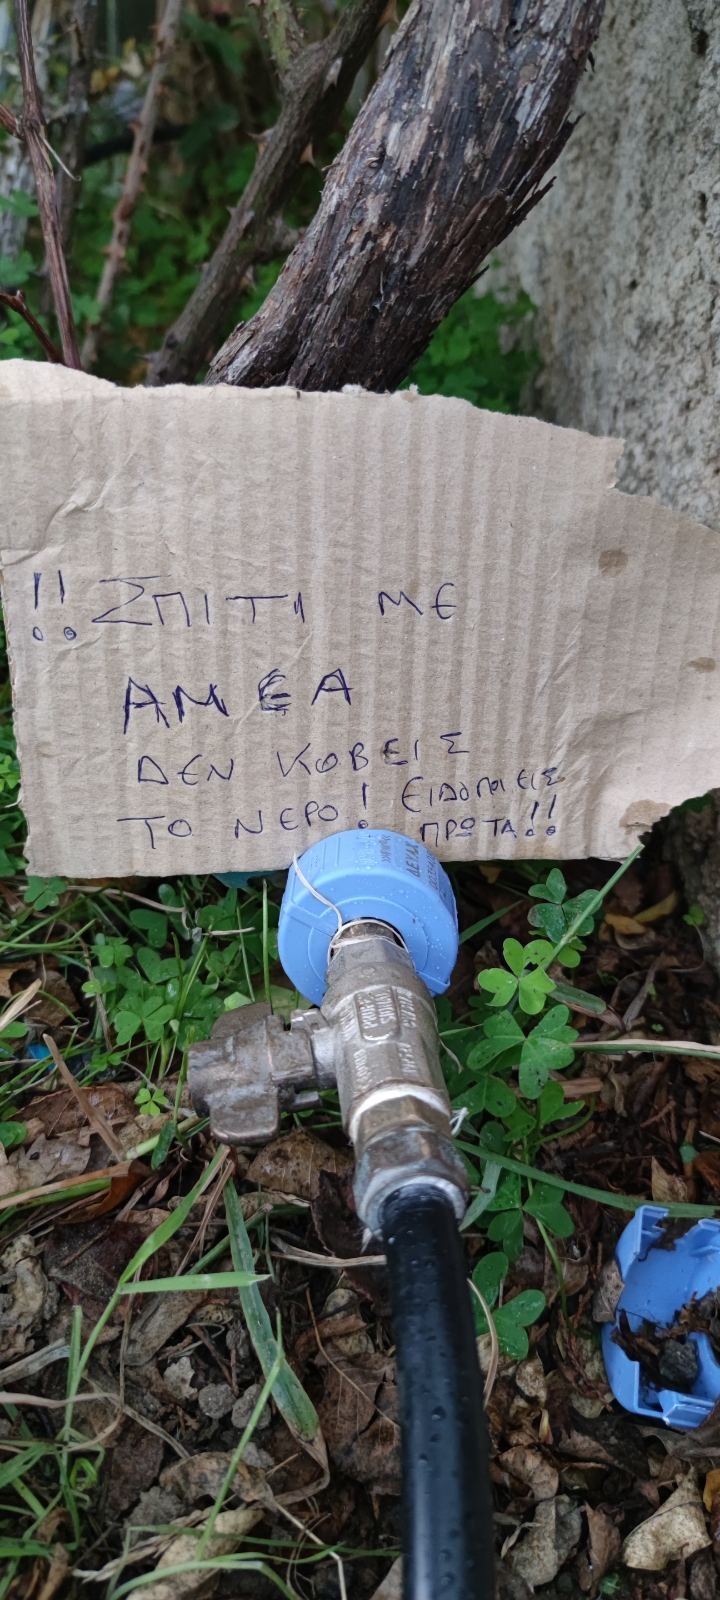 !! ΣΠΙΤΙ ΜΕ
ΑΜΕΑ
ΔΕΝ ΚΟΒΕΙΣ
ΤΟ ΝΕΡΟ! ΕΙΔΟΠΟΙΕΙΣ
ΠΡΩΤΑ!!